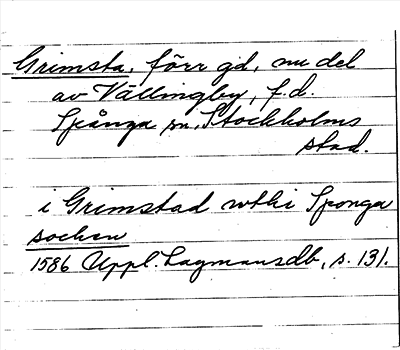 Grimsta, förr gd, nu del
av Vällingby, f.d.
Spånga sn, Stockholms
stad.
i Grimstad wthi Sponga
sochen
1586 Uppl. Lagmansdb, s. 131.